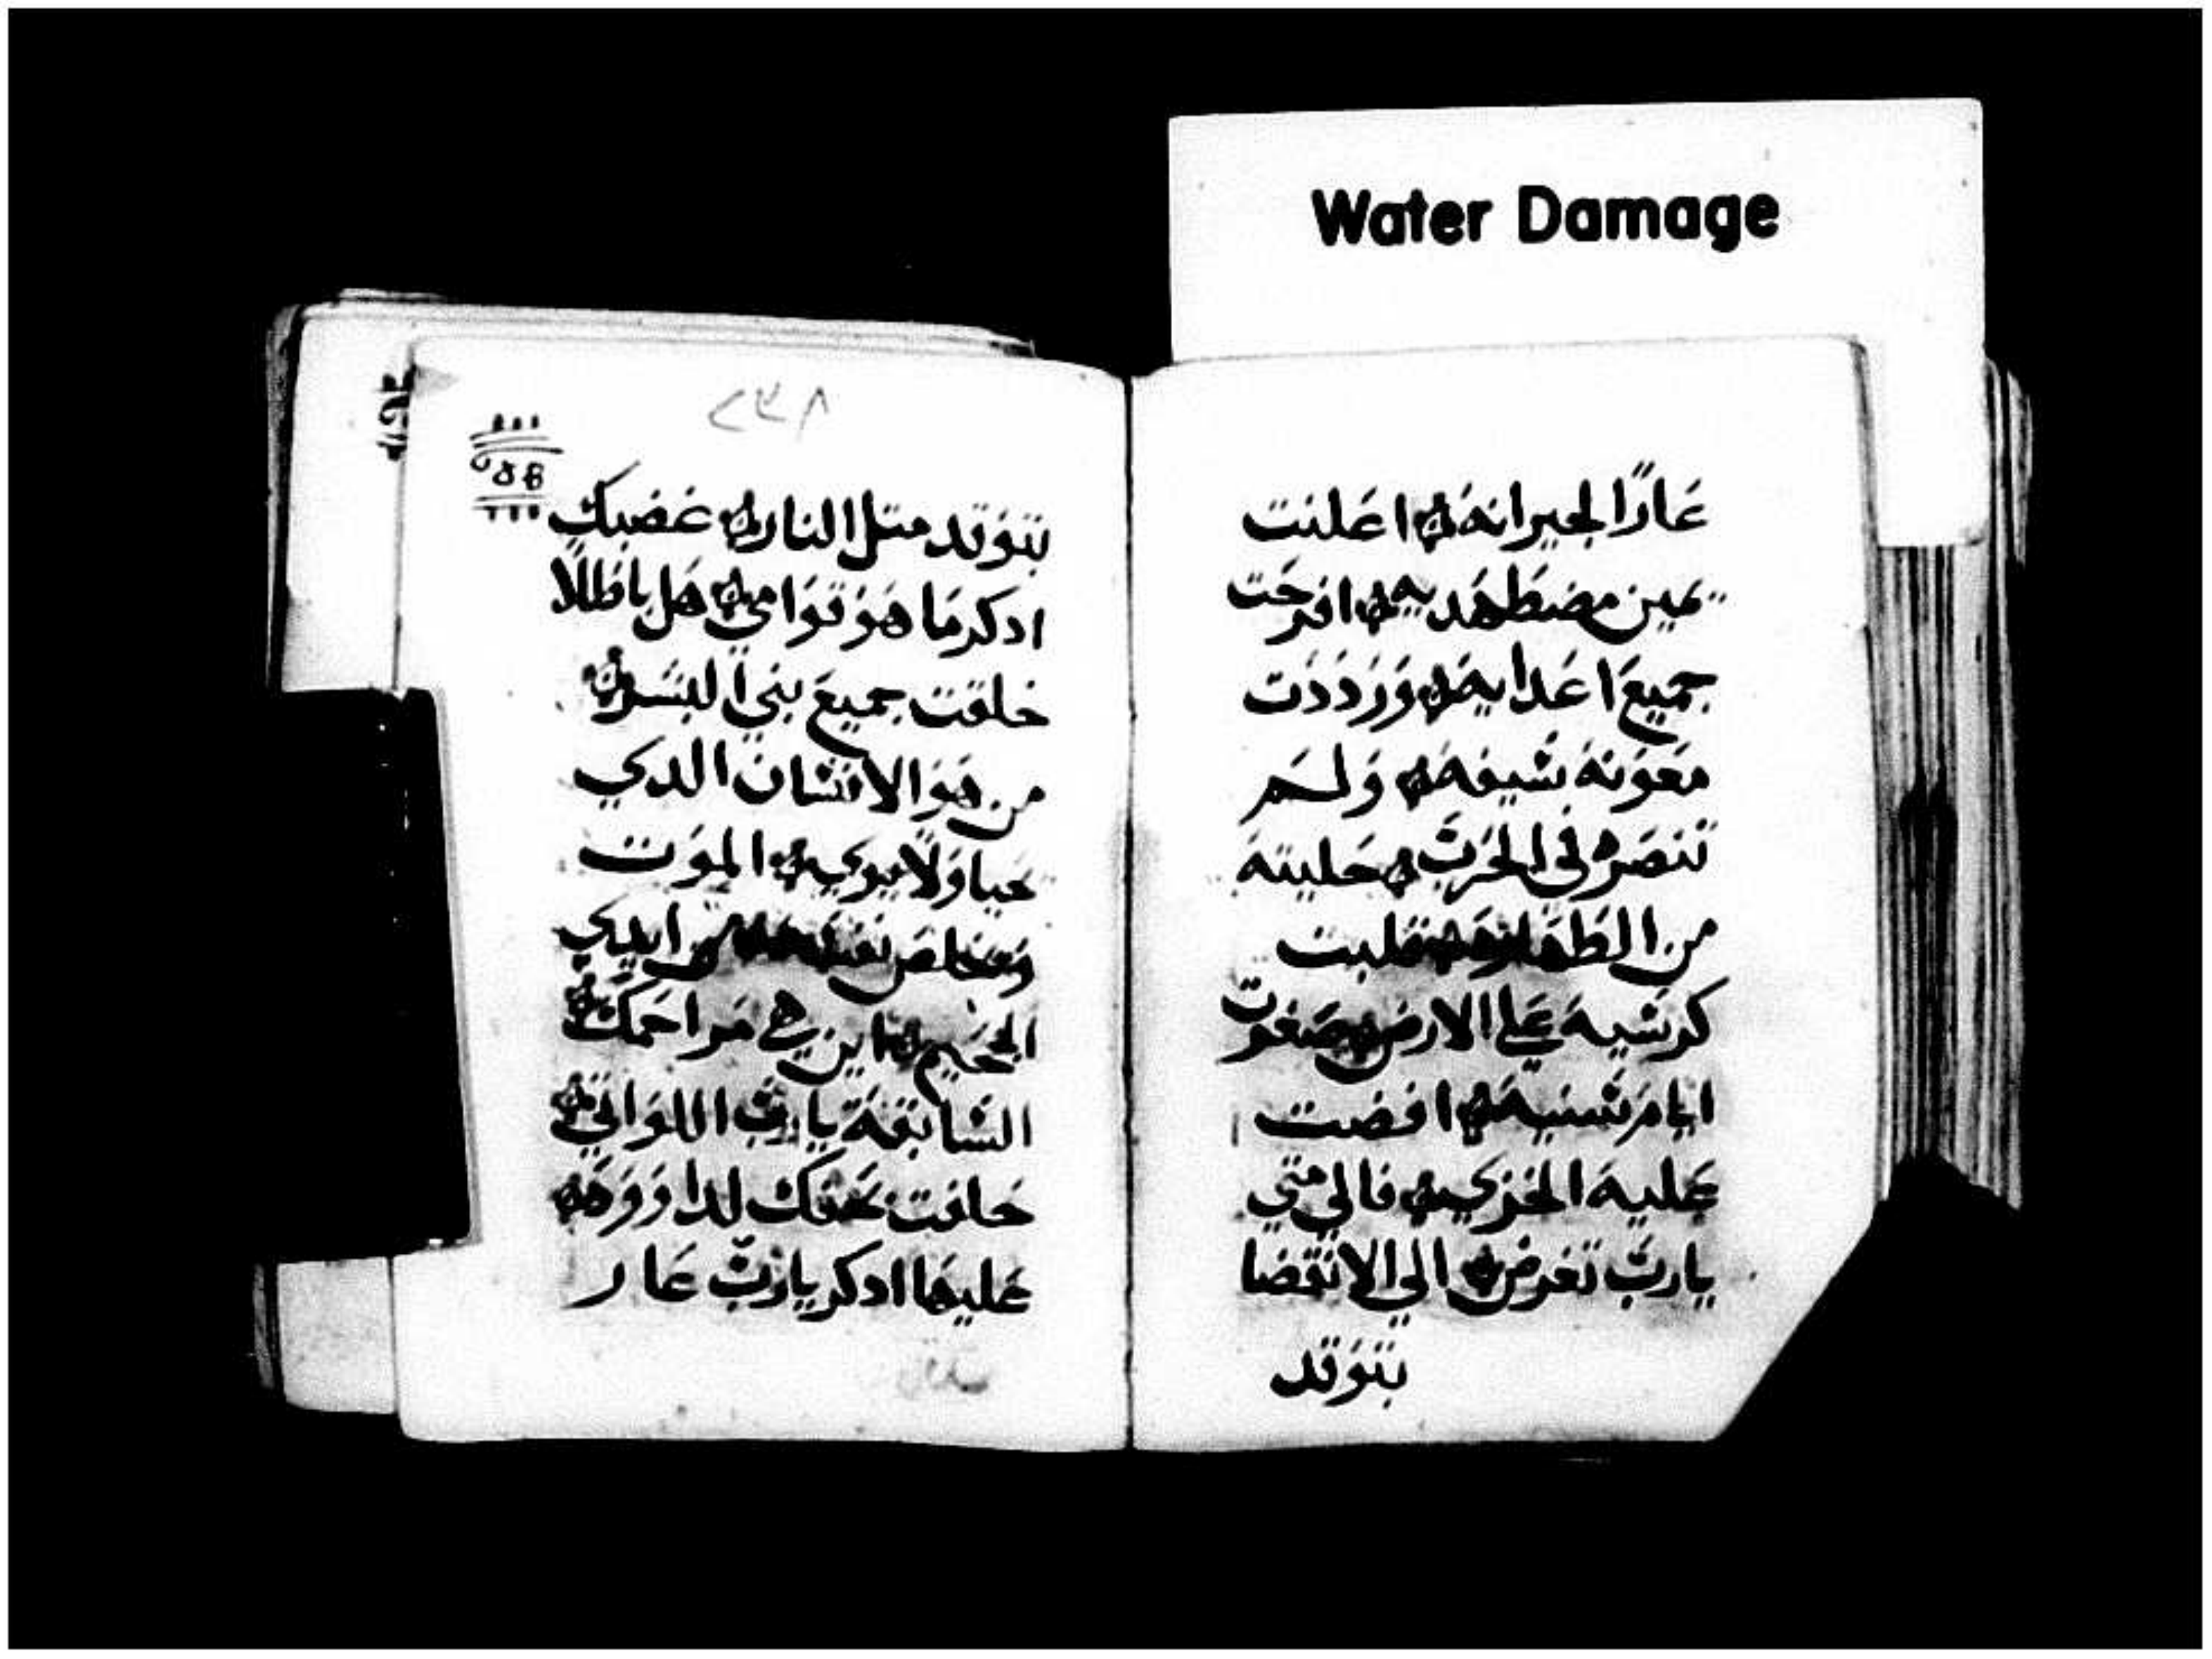 Water Damage
عَارًا لجيرانه اعَلنت
يمين مضطهديه افرحت
جميع اعدايه ورددت
معونة سيفه ولم
تنصره في الحرب حليته
من الطهارة قلبت
كرسيه علي الارض صغرت
ايام سنيه افضت
عليه الخزي فالي متي
يارب تعرض الي الانقضا
يتوقد
٢٣٨
يتوقد متل النار غضبك
ادكر ما هو قوامي هل باطلا
خلقت جميع بني البشر
من هو الانسان الدي
يحيا ولا يري الموت
ويخلص نفسه من ايدي
الجحيم اين هي مراحمك
السابقة يارب اللواتي
حلفت بحقك لداوود
عليها ادكر يارب عار